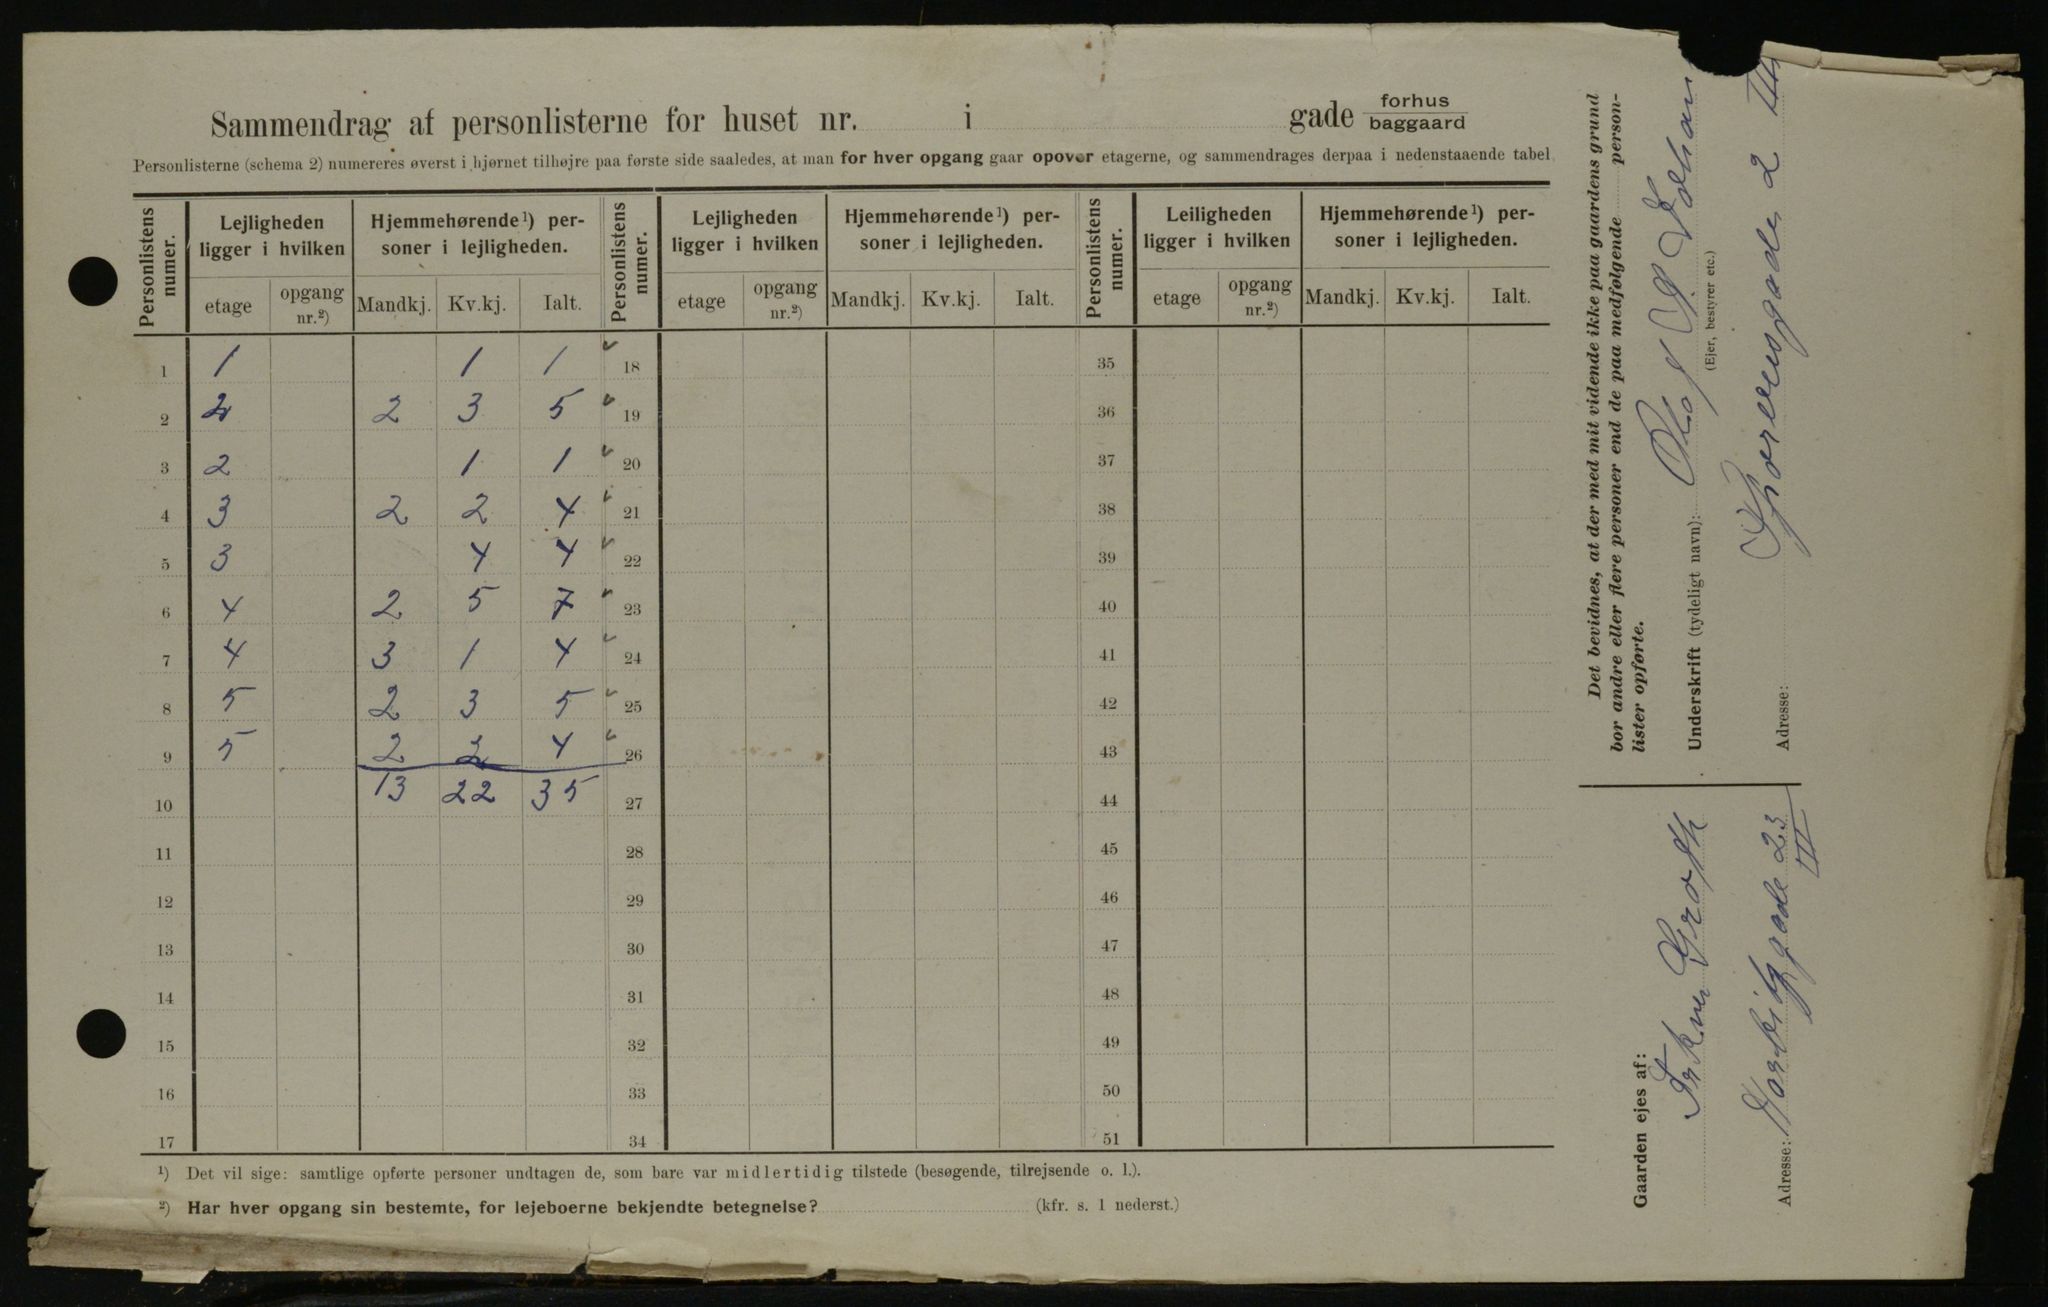 Sammendrag af personlisterne for huset nr. i gade forhus
baggaard
Personlisterne (schema 2) numereres øverst i hjørnet tilhøjre paa første side saaledes, at man for hver opgang gaar opover etagerne, og sammendrages derpaa i nedenstaaende tabel
Personlistens numer. Lejligheden ligger i hvilken Hjemmehørende¹) personer i lejligheden. Personlistens numer. Lejligheden ligger i hvilken Hjemmehørende¹) personer i lejligheden. Personlistens numer. Leiligheden ligger i hvilken Hjemmehørende¹) personer i lejligheden.
etage opgang nr.²) Mandkj. Kv.kj. Ialt. etage opgang nr.²) Mandkj. Kv.kj. Ialt. etage opgang nr.²) Mandkj. Kv.kj. Ialt.
1 1 1 1 18 35
2 2 2 3 5 19 36
3 2 1 1 20 37
4 3 2 2 4 21 38
5 3 4 4 22 39
6 4 2 5 7 23 40
7 4 3 1 4 24 41
8 5 2 3 5 25 42
9 5 2 2 4 26 43
10 13 22 35 27 44
11 28 45
12 29 46
13 30 47
14 31 48
15 32 49
16 33 50
17 34 51
¹) Det vil sige: samtlige opførte personer undtagen de, som bare var midlertidig tilstede (besøgende, tilrejsende o. l.).
²) Har hver opgang sin bestemte, for lejeboerne bekjendte betegnelse? (kfr. s. 1 nederst.)
Det bevidnes, at der med mit vidende ikke paa gaardens grund
bor andre eller flere personer end de paa medfølgende person-
lister opførte.
Underskrift (tydeligt navn):
(Ejer, bestyrer etc.)
Adresse: 2 III
Gaarden ejes af:
Grøth
Adresse: 23
III